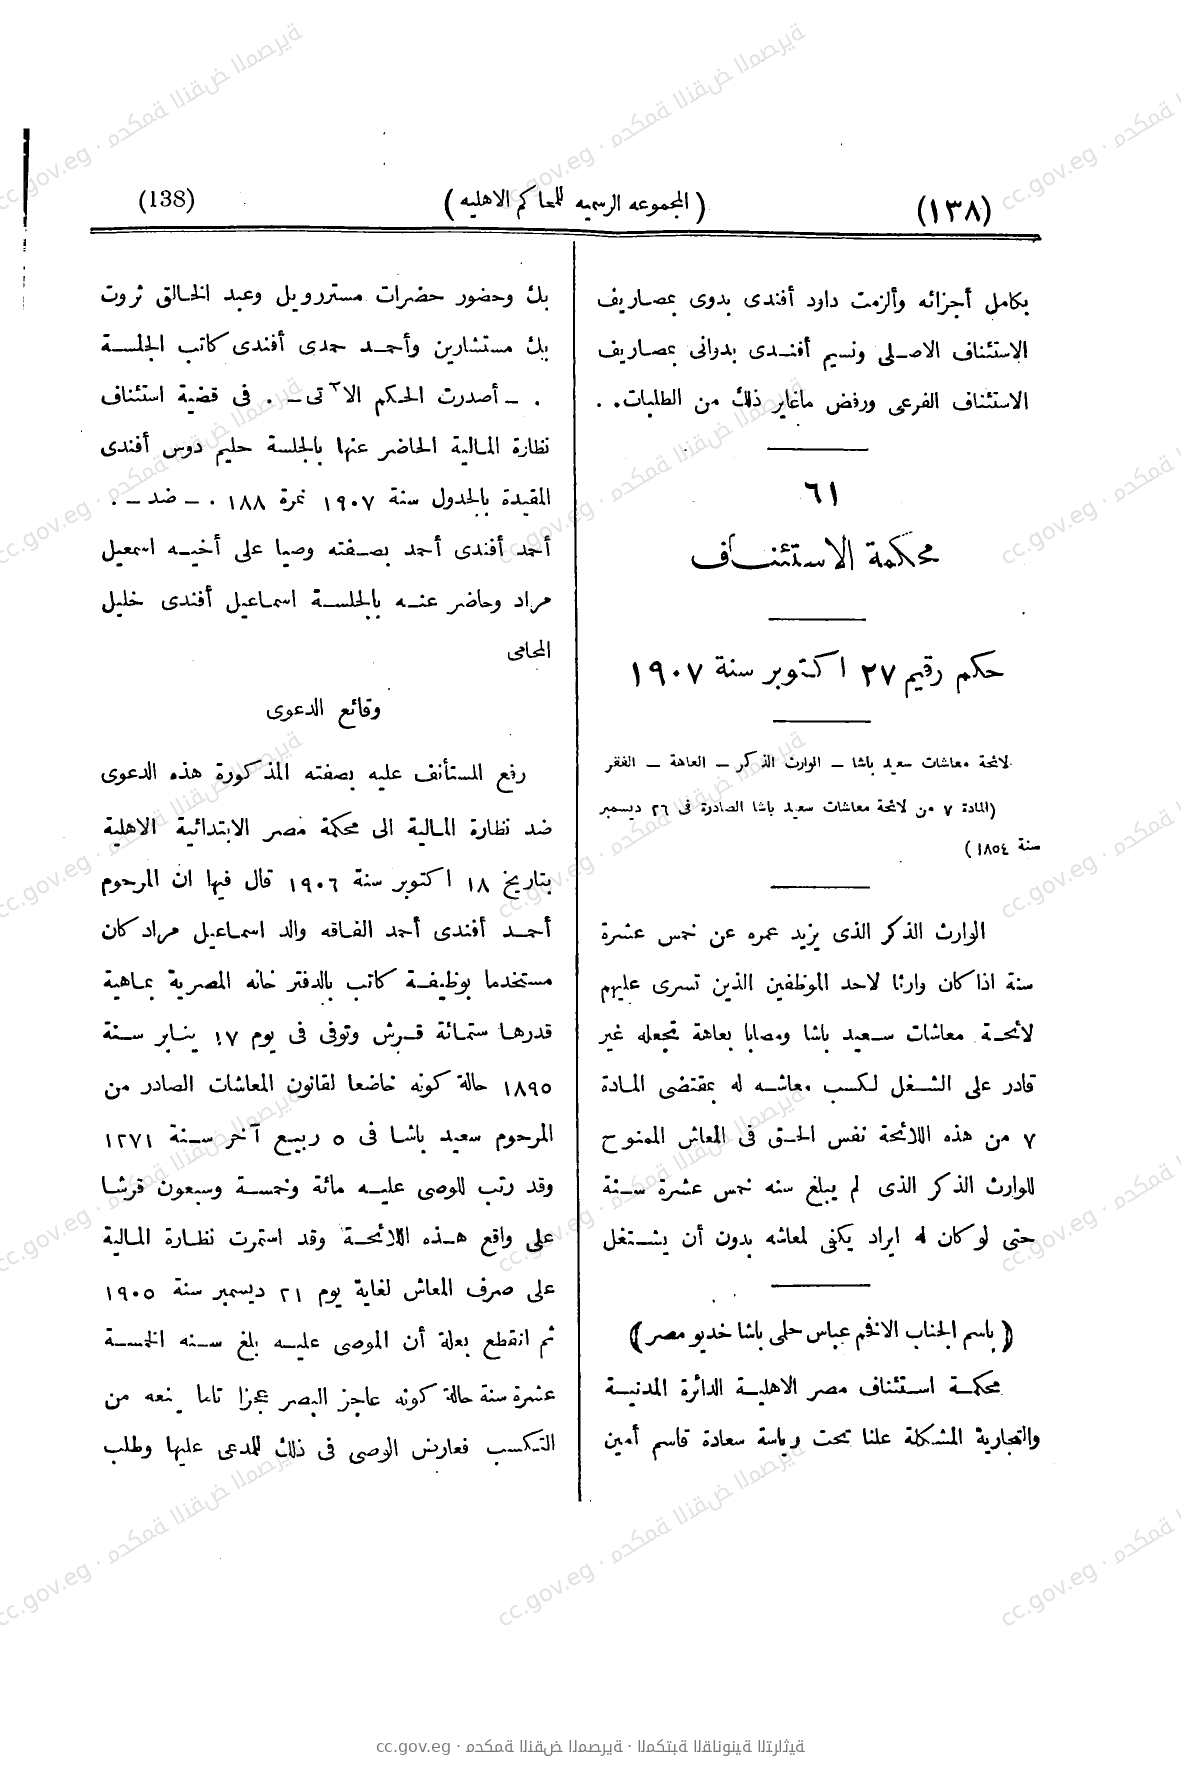 (١٣٨)
( المجموعه الرسميه للمحاكم الاهليه )
(138)
بكامل أجزائه وألزمت داود أفندى بدوى بمصاريف
الاستئناف الاصلى ونسيم أفندى بدوانى بمصاريف
الاستئناف الفرعى ورفض ماغاير ذلك من الطلبات . .
٦١
محكمة الاستئناف
حكم رقيم ٢٧ اكتوبر سنة ١٩٠٧
لائحة معاشات سعيد باشا – الوارث الذكر – العاهة – الفقر
(المادة ٧ من لائحة معاشات سعيد باشا الصادرة فى ٢٦ ديسمبر
سنة ١٨٥٤)
الوارث الذكر الذى يزيد عمره عن خمس عشرة
سنة اذا كان وارثا لاحد الموظفين الذين تسرى عليهم
لائحة معاشات سعيد باشا ومصابا بعاهة تجعله غير
قادر على الشغل لكسب معاشه له بمقتضى المادة
٧ من هذه اللائحة نفس الحق فى المعاش الممنوح
للوارث الذكر الذى لم يبلغ سنه خمس عشرة سنة
حتى لو كان له ايراد يكفى لمعاشه بدون أن يشتغل
( باسم الجناب الافخم عباس حلمى باشا خديو مصر )
محكمة استئناف مصر الاهلية الدائرة المدنية
والتجارية المشكلة علنا تحت رياسة سعادة قاسم أمين
بك وحضور حضرات مستر رويل وعبد الخالق ثروت
بك مستشارين وأحمد حمدى أفندى كاتب الجلسة
. – أصدرت الحكم الآتى – . فى قضية استئناف
نظارة المالية الحاضر عنها بالجلسة حليم دوس أفندى
المقيدة بالجدول سنة ١٩٠٧ نمرة ١٨٨ . – ضد – .
أحمد أفندى أحمد بصفته وصيا على أخيه اسمعيل
مراد وحاضر عنه بالجلسة اسماعيل أفندى خليل
المحامى
وقائع الدعوى
رفع المستأنف عليه بصفته المذكورة هذه الدعوى
ضد نظارة المالية الى محكمة مصر الابتدائية الاهلية
بتاريخ ١٨ اكتوبر سنة ١٩٠٦ قال فيها ان المرحوم
أحمد أفندى أحمد الفاقه والد اسماعيل مراد كان
مستخدما بوظيفة كاتب بالدفتر خانه المصرية بماهية
قدرها ستمائة قرش وتوفى فى يوم ١٧ يناير سنة
١٨٩٥ حالة كونه خاضعا لقانون المعاشات الصادر من
المرحوم سعيد باشا فى ٥ ربيع آخر سنة ١٢٧١
وقد رتب للوصى عليه مائة وخمسة وسبعون قرشا
على واقع هذه اللائحة وقد استمرت نظارة المالية
على صرف المعاش لغاية يوم ٢١ ديسمبر سنة ١٩٠٥
ثم انقطع بعلة أن الموصى عليه بلغ سنه الخمسة
عشرة سنة حالة كونه عاجز البصر عجزا تاما يمنعه من
التكسب فعارض الوصى فى ذلك للمدعى عليها وطلب
cc.gov.eg · محكمة النقض المصرية · المكتبة القانونية التراثية